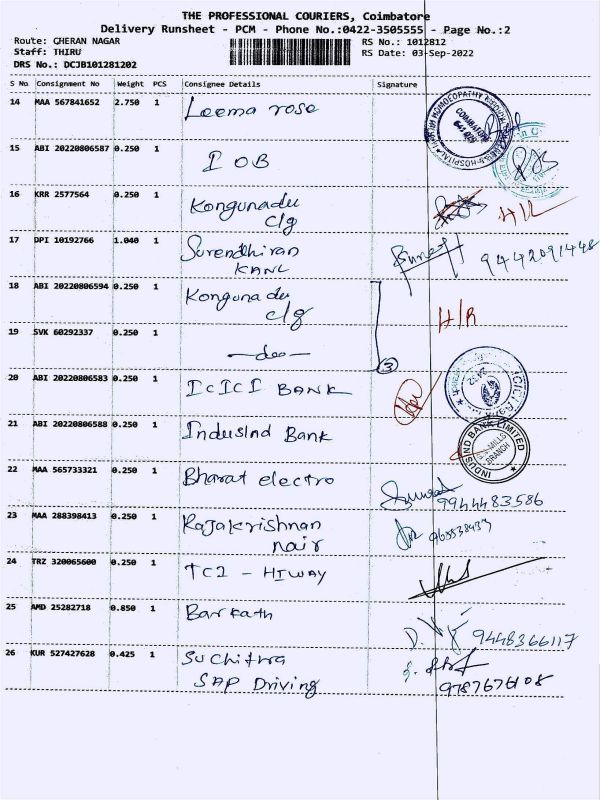 THE PROFESSIONAL COURIERS, Coimbatore
Delivery Runsheet - PCM - Phone No.:0422-3505555 - Page No.:2
Route: CHERAN NAGAR RS No.: 1012812
Staff: THIRU RS Date: 03-Sep-2022
DRS No.: DCJB101281202
S No Consignment No Weight PCS Consignee Details Signature
14 MAA 567841652 2.750 1 Leema rose
COIMBATORE
15 ABI 20220806587 0.250 1 I OB
16 KRR 2577564 0.250 1 Kongunadu
clg H/R
17 DPI 10192766 1.040 1 Surendhiran
KANL 9442091448
18 ABI 20220806594 0.250 1 Kongunadu
clg H/R
19 SVK 60292337 0.250 1 -do-
3
20 ABI 20220806583 0.250 1 ICICI BANK
21 ABI 20220806588 0.250 1 IndusInd Bank
INDUSIND BANK LIMITED
BRANCH
22 MAA 565733321 0.250 1 Bharat electro
9944483586
23 MAA 288398413 0.250 1 Rajakrishnan
nair
24 TRZ 320065600 0.250 1 TCI - HIWAY
25 AMD 25282718 0.850 1 Barkath
9448366117
26 KUR 527427628 0.425 1 Suchitra
SAP Driving